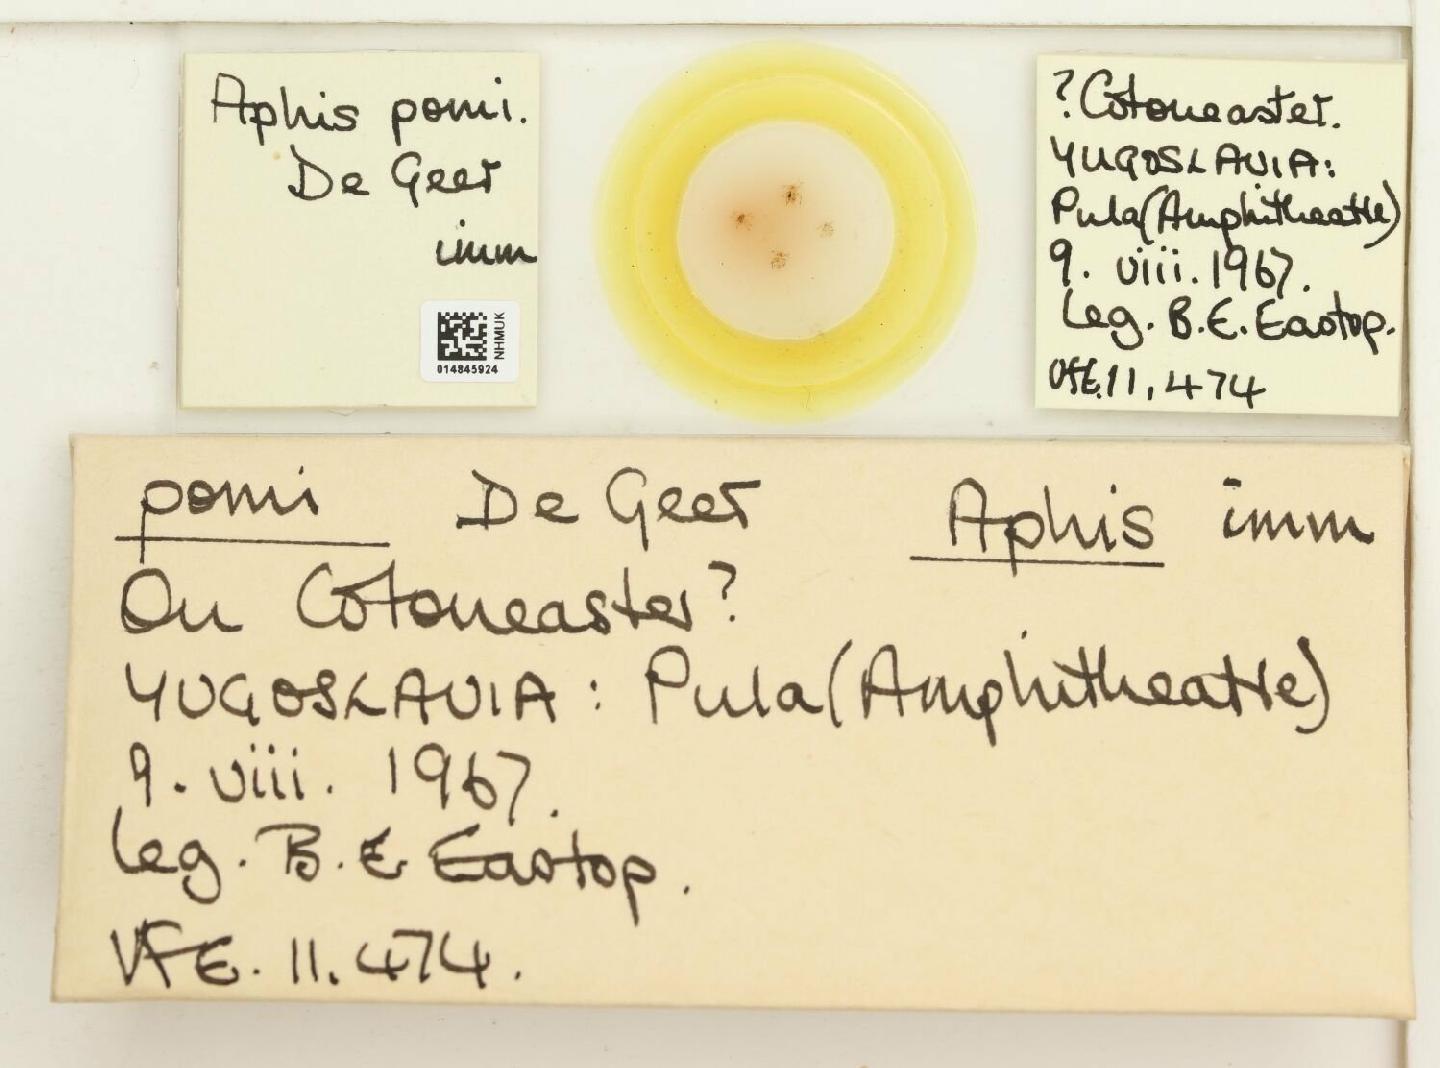 Aphis pomi.
De Geer
imm
NHMUK
014845924
?Cotoneaster.
YUGOSLAVIA:
Pula (Amphitheatre)
9. viii. 1967.
Leg. B.E. Eastop.
VfE. 11,474
pomi De Geer Aphis imm
On Cotoneaster?
YUGOSLAVIA: Pula (Amphitheatre)
9. viii. 1967.
leg. B. E Eastop.
VFE. 11.474.